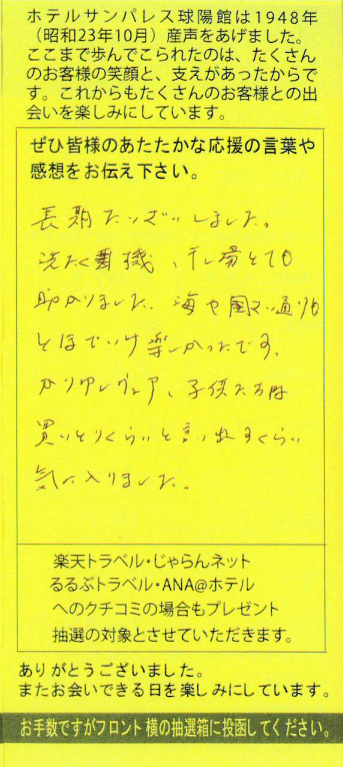 ホテルサンパレス球陽館は1948年
（昭和23年10月）産声をあげました。
ここまで歩んでこられたのは、たくさん
のお客様の笑顔と、支えがあったからで
す。これからもたくさんのお客様との出
会いを楽しみにしています。
ぜひ皆様のあたたかな応援の言葉や
感想をお伝え下さい。
長期たいざいしました。
洗たく機、干し場とても
助かりました、海や国さい通りも
とほでいけ楽しかったです。
かりゆしウェア、子供たちは
買いとりくらいと言い出すくらい
気に入りました。
楽天トラベル・じゃらんネット
るるぶトラベル・ANA@ホテル
へのクチコミの場合もプレゼント
抽選の対象とさせていただきます。
ありがとうございました。
またお会いできる日を楽しみにしています。
お手数ですがフロント横の抽選箱に投函してください。